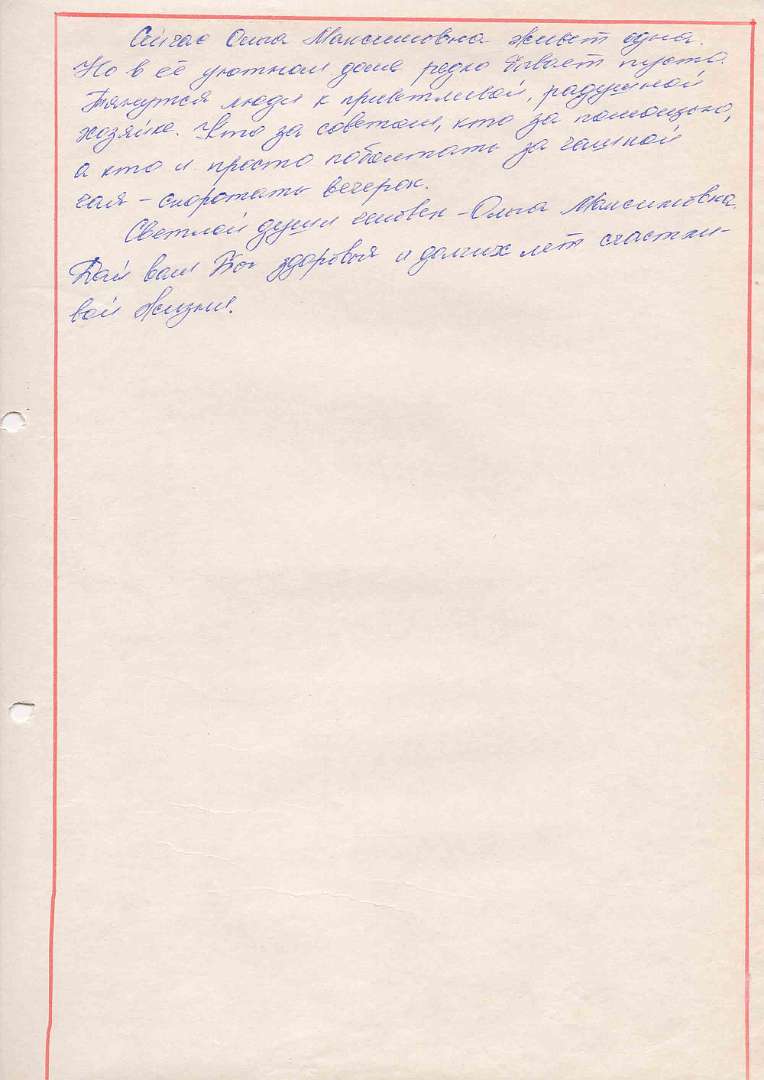 Сейчас Ольга Максимовна живет одна.
Но в её уютном доме редко бывает пусто.
Тянутся люди к приветливой, радушной
хозяйке. Кто за советом, кто за помощью,
а кто и просто поболтать за чашкой
чая – скоротать вечерок.
Светлой души человек – Ольга Максимовна.
Дай вам Бог здоровья и долгих лет счастли-
вой жизни.